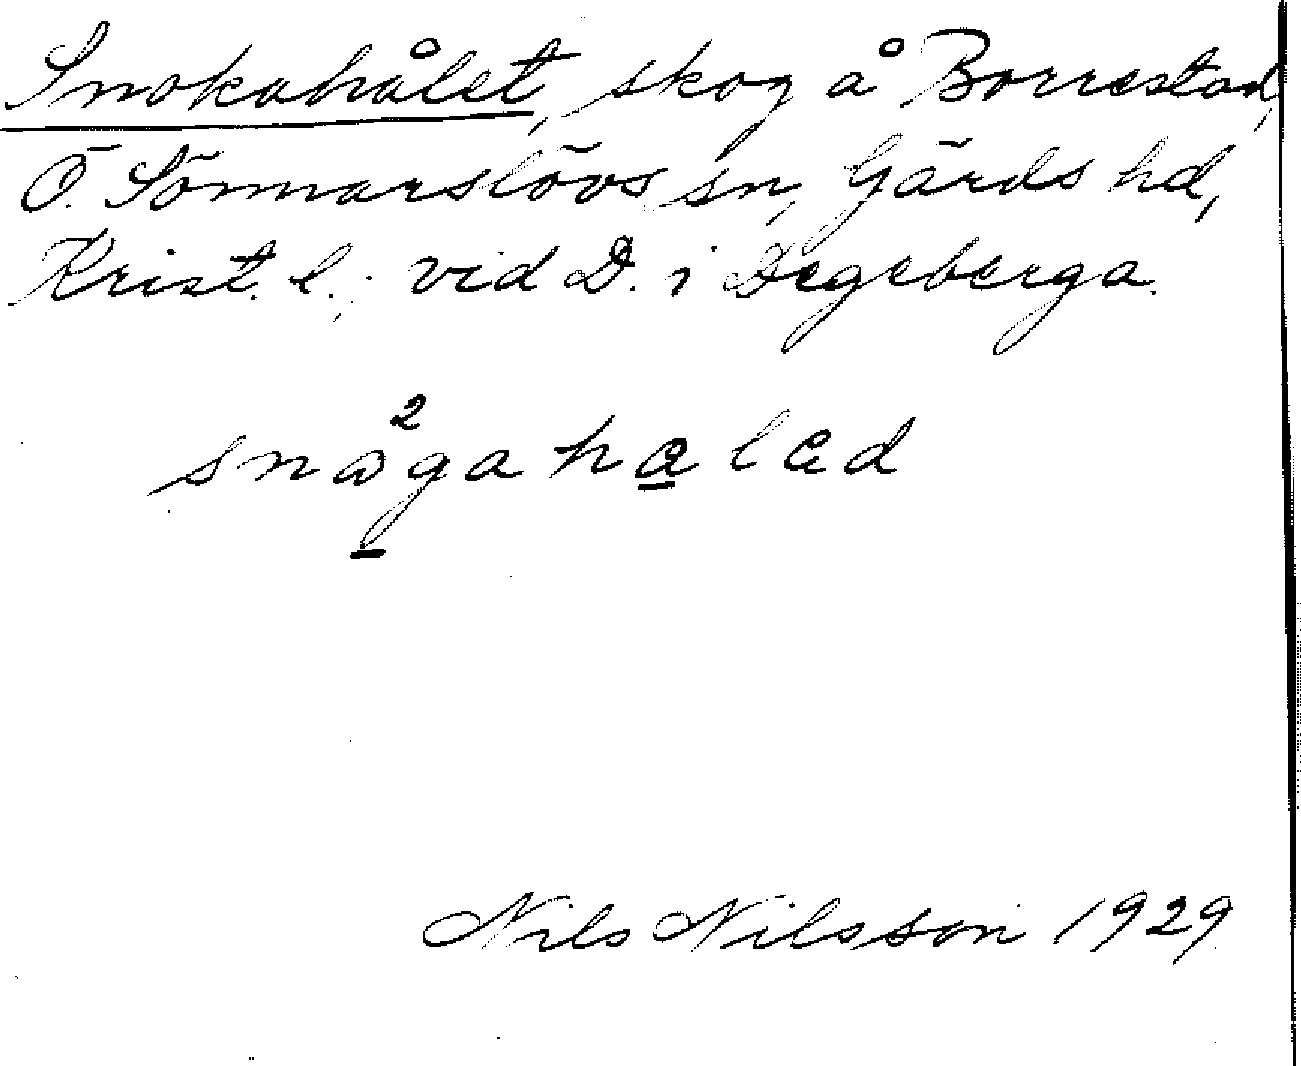 Snokahålet, skog å Borrestad,
Ö. Sönnarslövs sn, Gärds hd,
Krist. l.; vid D. i Degeberga.
snɷ²gahalad
Nils Nilsson 1929